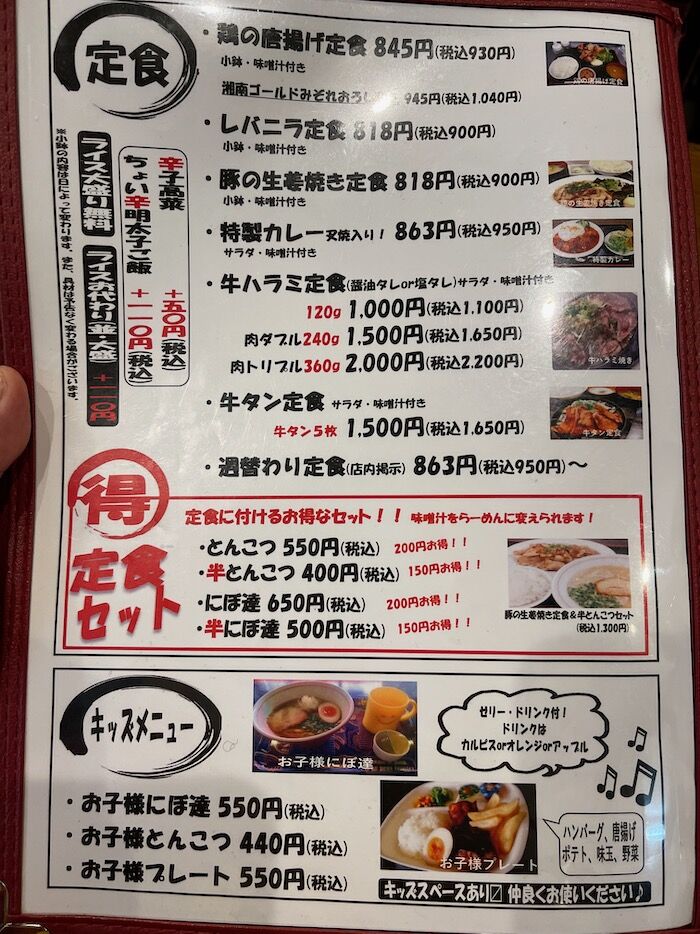 定食
・鶏の唐揚げ定食 845円(税込930円)
小鉢・味噌汁付き
湘南ゴールドみぞれおろし 945円(税込1,040円)
・レバニラ定食 818円(税込900円)
小鉢・味噌汁付き
・豚の生姜焼き定食 818円(税込900円)
小鉢・味噌汁付き
・特製カレー 叉焼入り! 863円(税込950円)
サラダ・味噌汁付き
・牛ハラミ定食(醤油タレor塩タレ)サラダ・味噌汁付き
120g 1,000円(税込1,100円)
肉ダブル240g 1,500円(税込1,650円)
肉トリプル360g 2,000円(税込2,200円)
・牛タン定食 サラダ・味噌汁付き
牛タン5枚 1,500円(税込1,650円)
・週替わり定食(店内掲示) 863円(税込950円)～
鶏の唐揚げ定食
豚の生姜焼き定食
特製カレー
牛ハラミ焼き
牛タン定食
辛子高菜 +五〇円(税込)
ちょい辛明太子ご飯 +一一〇円(税込)
ライス大盛り無料
ライスお代わり 並・大盛 +一一〇円
※小鉢の内容は日によって変わります。また、具材は予告なく変わる場合がございます。
得
定食
セット
定食に付けるお得なセット!! 味噌汁をらーめんに変えられます!
・とんこつ 550円(税込) 200円お得!!
・半とんこつ 400円(税込) 150円お得!!
・にぼ達 650円(税込) 200円お得!!
・半にぼ達 500円(税込) 150円お得!!
豚の生姜焼き定食&半とんこつセット
(税込1,300円)
キッズメニュー
お子様にぼ達
ゼリー・ドリンク付!
ドリンクは
カルピスorオレンジorアップル
・お子様にぼ達 550円(税込)
・お子様とんこつ 440円(税込)
・お子様プレート 550円(税込)
お子様プレート
ハンバーグ、唐揚げ
ポテト、味玉、野菜
キッズスペースあり 仲良くお使いください♪